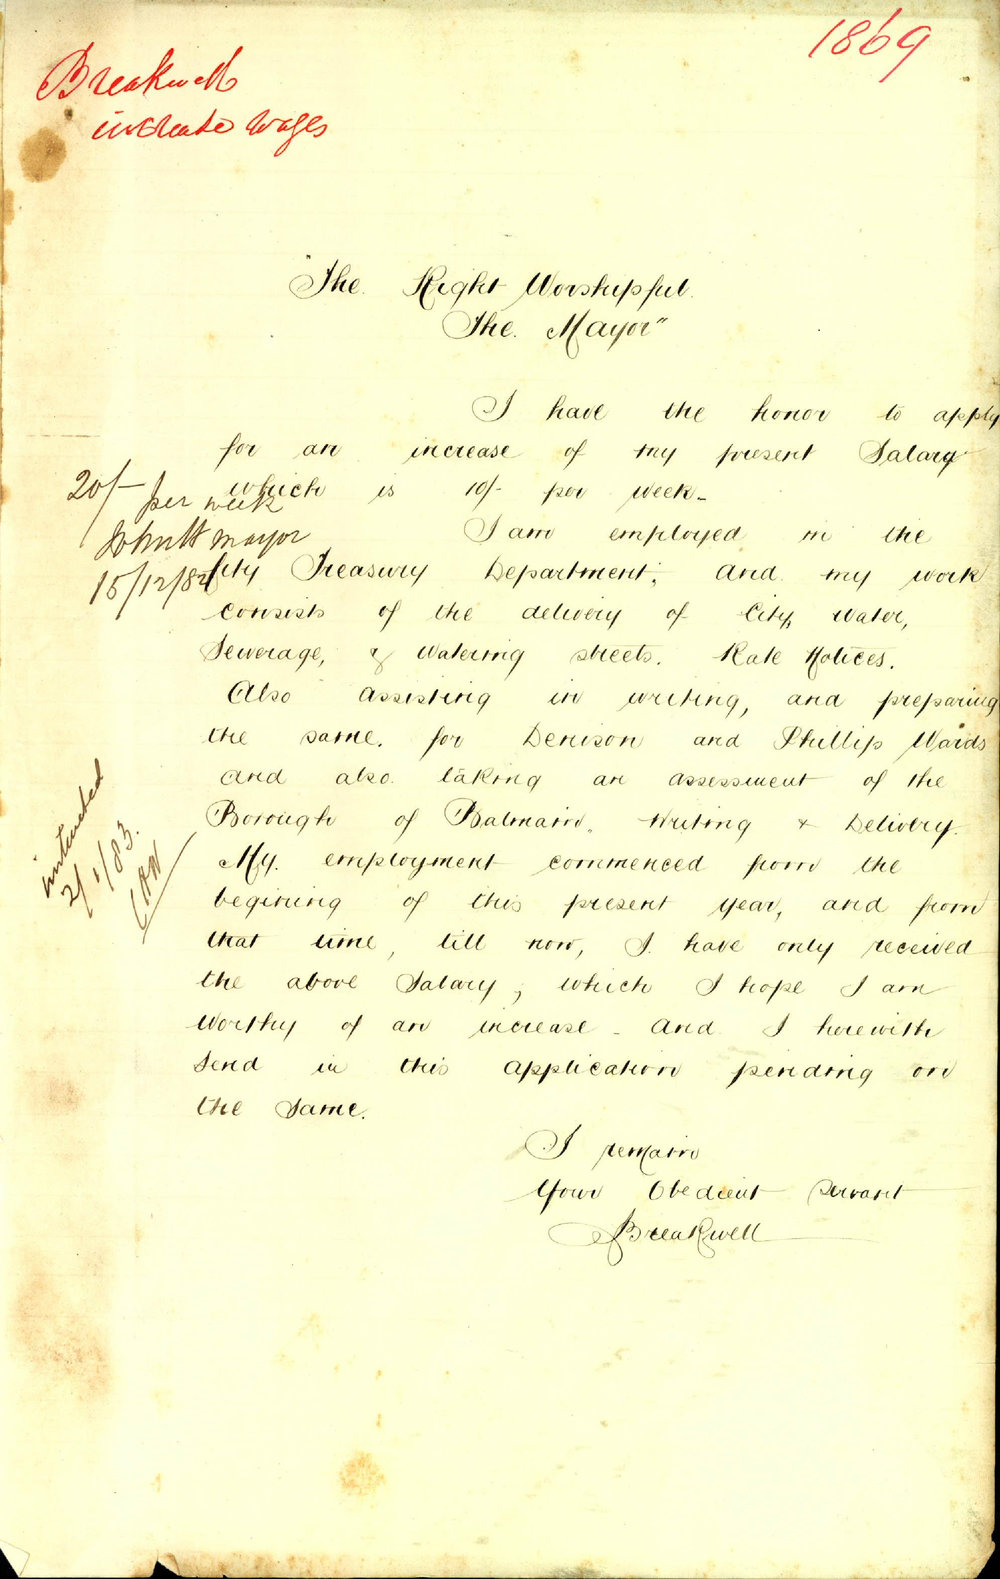 1869
Breakwell
increase wages
"The Right Worshipful
The Mayor"
I have the honor to apply
for an increase of my present Salary
which is 10/- per week -
I am employed in the
City Treasury Department; and my work
consists of the delivery of City, Water,
Sewerage, & Watering streets. Rate Notices.
Also assisting in writing, and preparing
the same. for Denison and Phillip Wards
and also taking an assessment of the
Borough of Balmain. Writing & Delivery.
My employment commenced from the
begining of this present year, and from
that time, till now, I have only received
the above Salary; which I hope I am
Worthy of an increase - and I herewith
Send in this application pending on
the Same.
I remain
Your Obedient Servant
Breakwell
20/- per week
mayor
15/12/82
instructed
2/1/83.